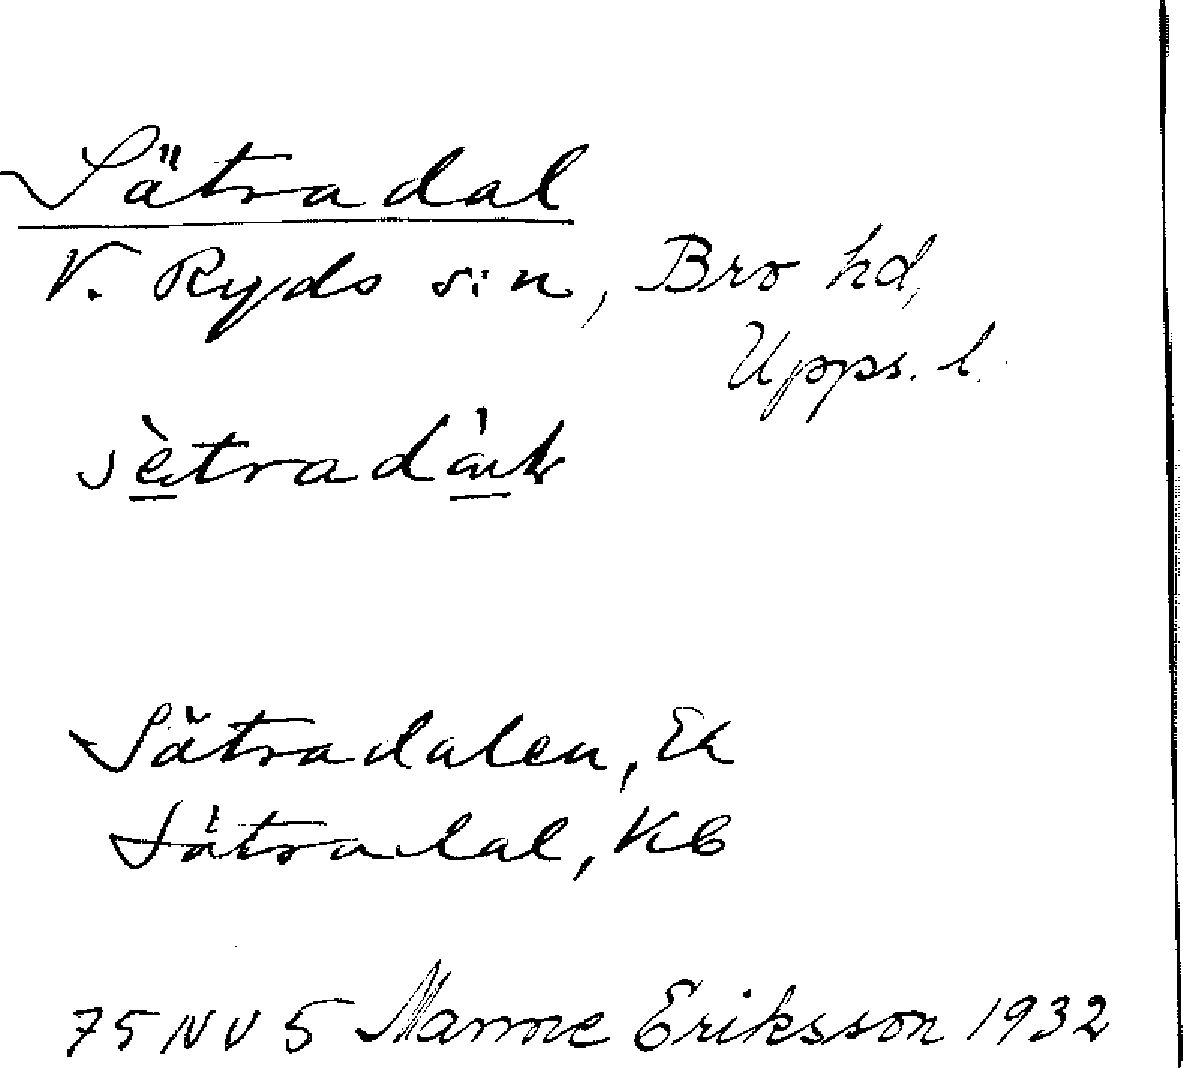 Sätradal
V. Ryds s:n, Bro hd,
Upps. l.
Sätradalen, Ek
Sätradal, Kb
75 NV 5 Manne Eriksson 1932